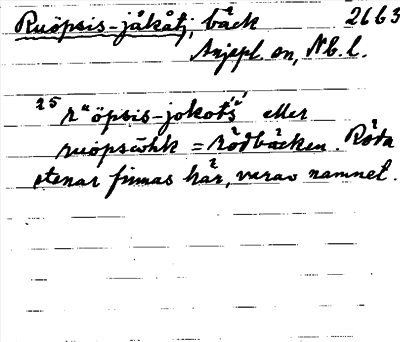 Ruöpsis-jåkåtj, bäck 2663
Anjepl. sn, Nb. l.
25 rᵘöpsis-jokot's' eller
ruopsöhk = rödbäcken. Röda
stenar finnas här, varav namnet.